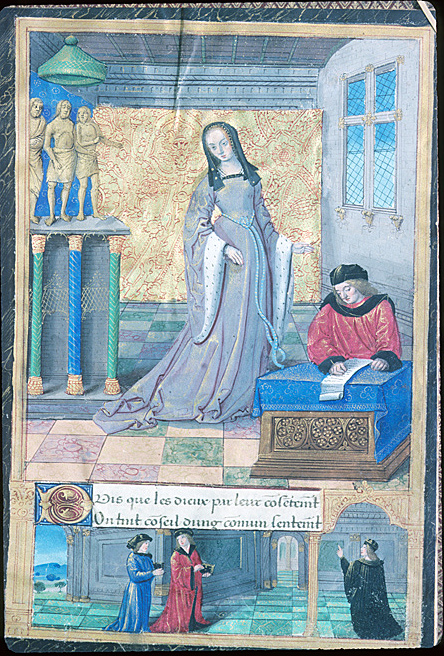 Puis que les dieux par leur cõsẽtemẽt
Ont tint cõseil dung comun sentemẽt